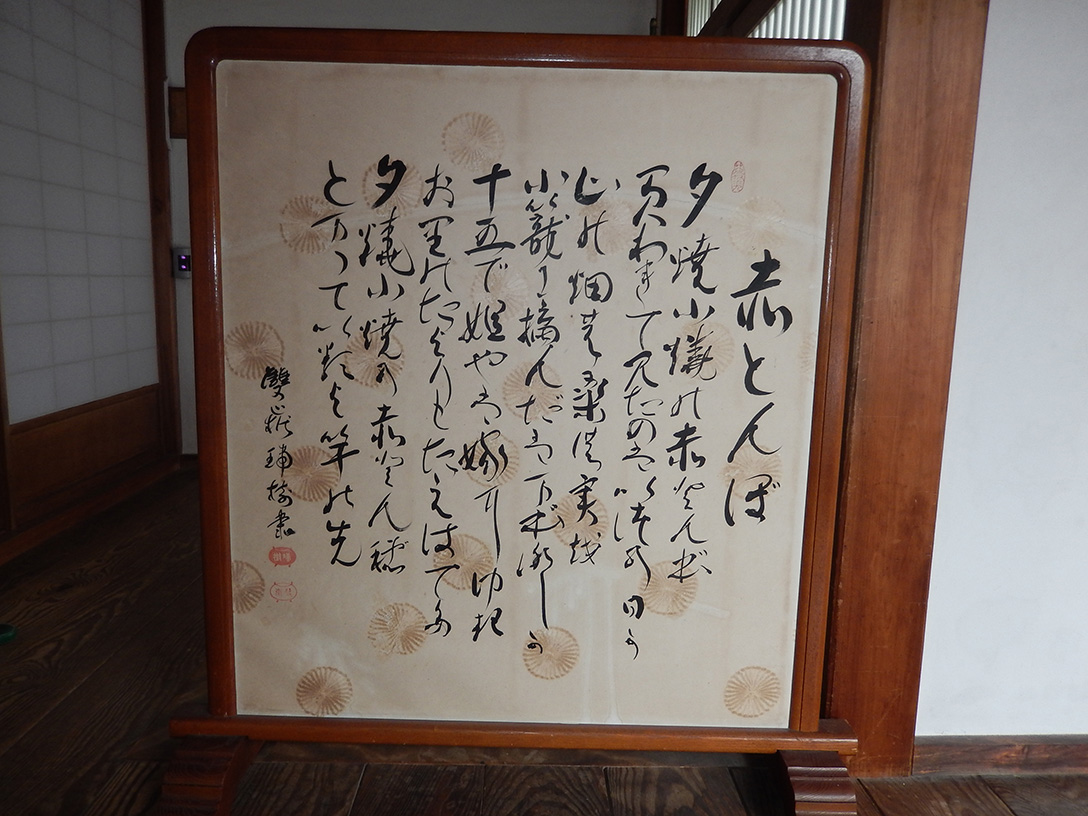 赤とんぼ
夕焼小焼の赤とんぼ
負われて見たのはいつの日か
山の畑の桑の実を
小籠に摘んだはまぼろしか
十五で姐やは嫁にゆき
お里のたよりもたえはてた
夕焼小焼の赤とんぼ
とまっているよ竿の先